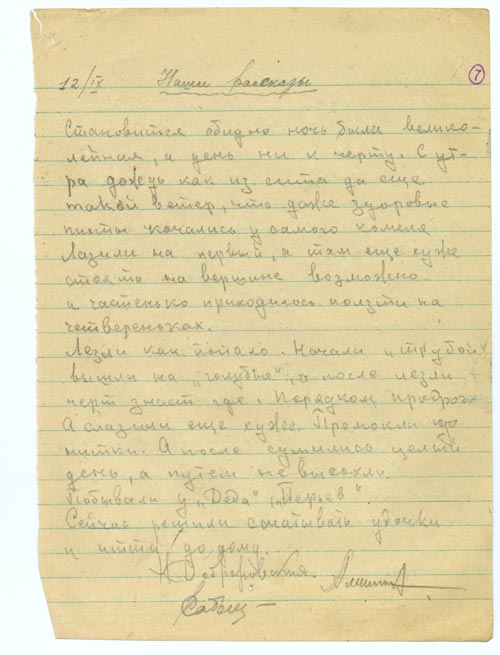 7
12/IX Наши рассказы
Становится обидно ночь была велико-
лепная, а день ни к черту. С ут-
ра дождь как из сита да еще
такой ветер, что даже здоровые
пихты качались у самого комеля
Лазили на первый, а там еще хуже
стоять на вершине возможно
и частенько приходилось ползти на
четвереньках.
Лезли как попало. Начали „трубой"
вышли на „голубые", а после лезли
черт знает где. Порядком продрог.
А слазили еще хуже. Промокли до
нитки. А после сушились целый
день, а путем не высохли.
Побывали у „Деда" „Перьев".
Сейчас решили сматывать удочки
и итти до дому.